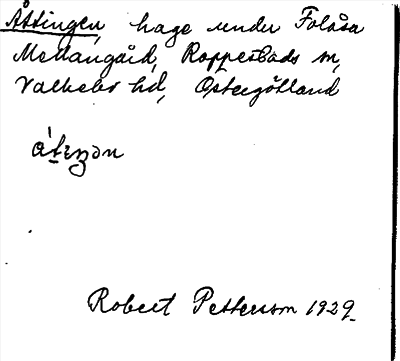 Åttingen, hage under Folåsa
Mellangård, Rappestads sn,
Valkebo hd, Östergötland
Robert Petterson 1929